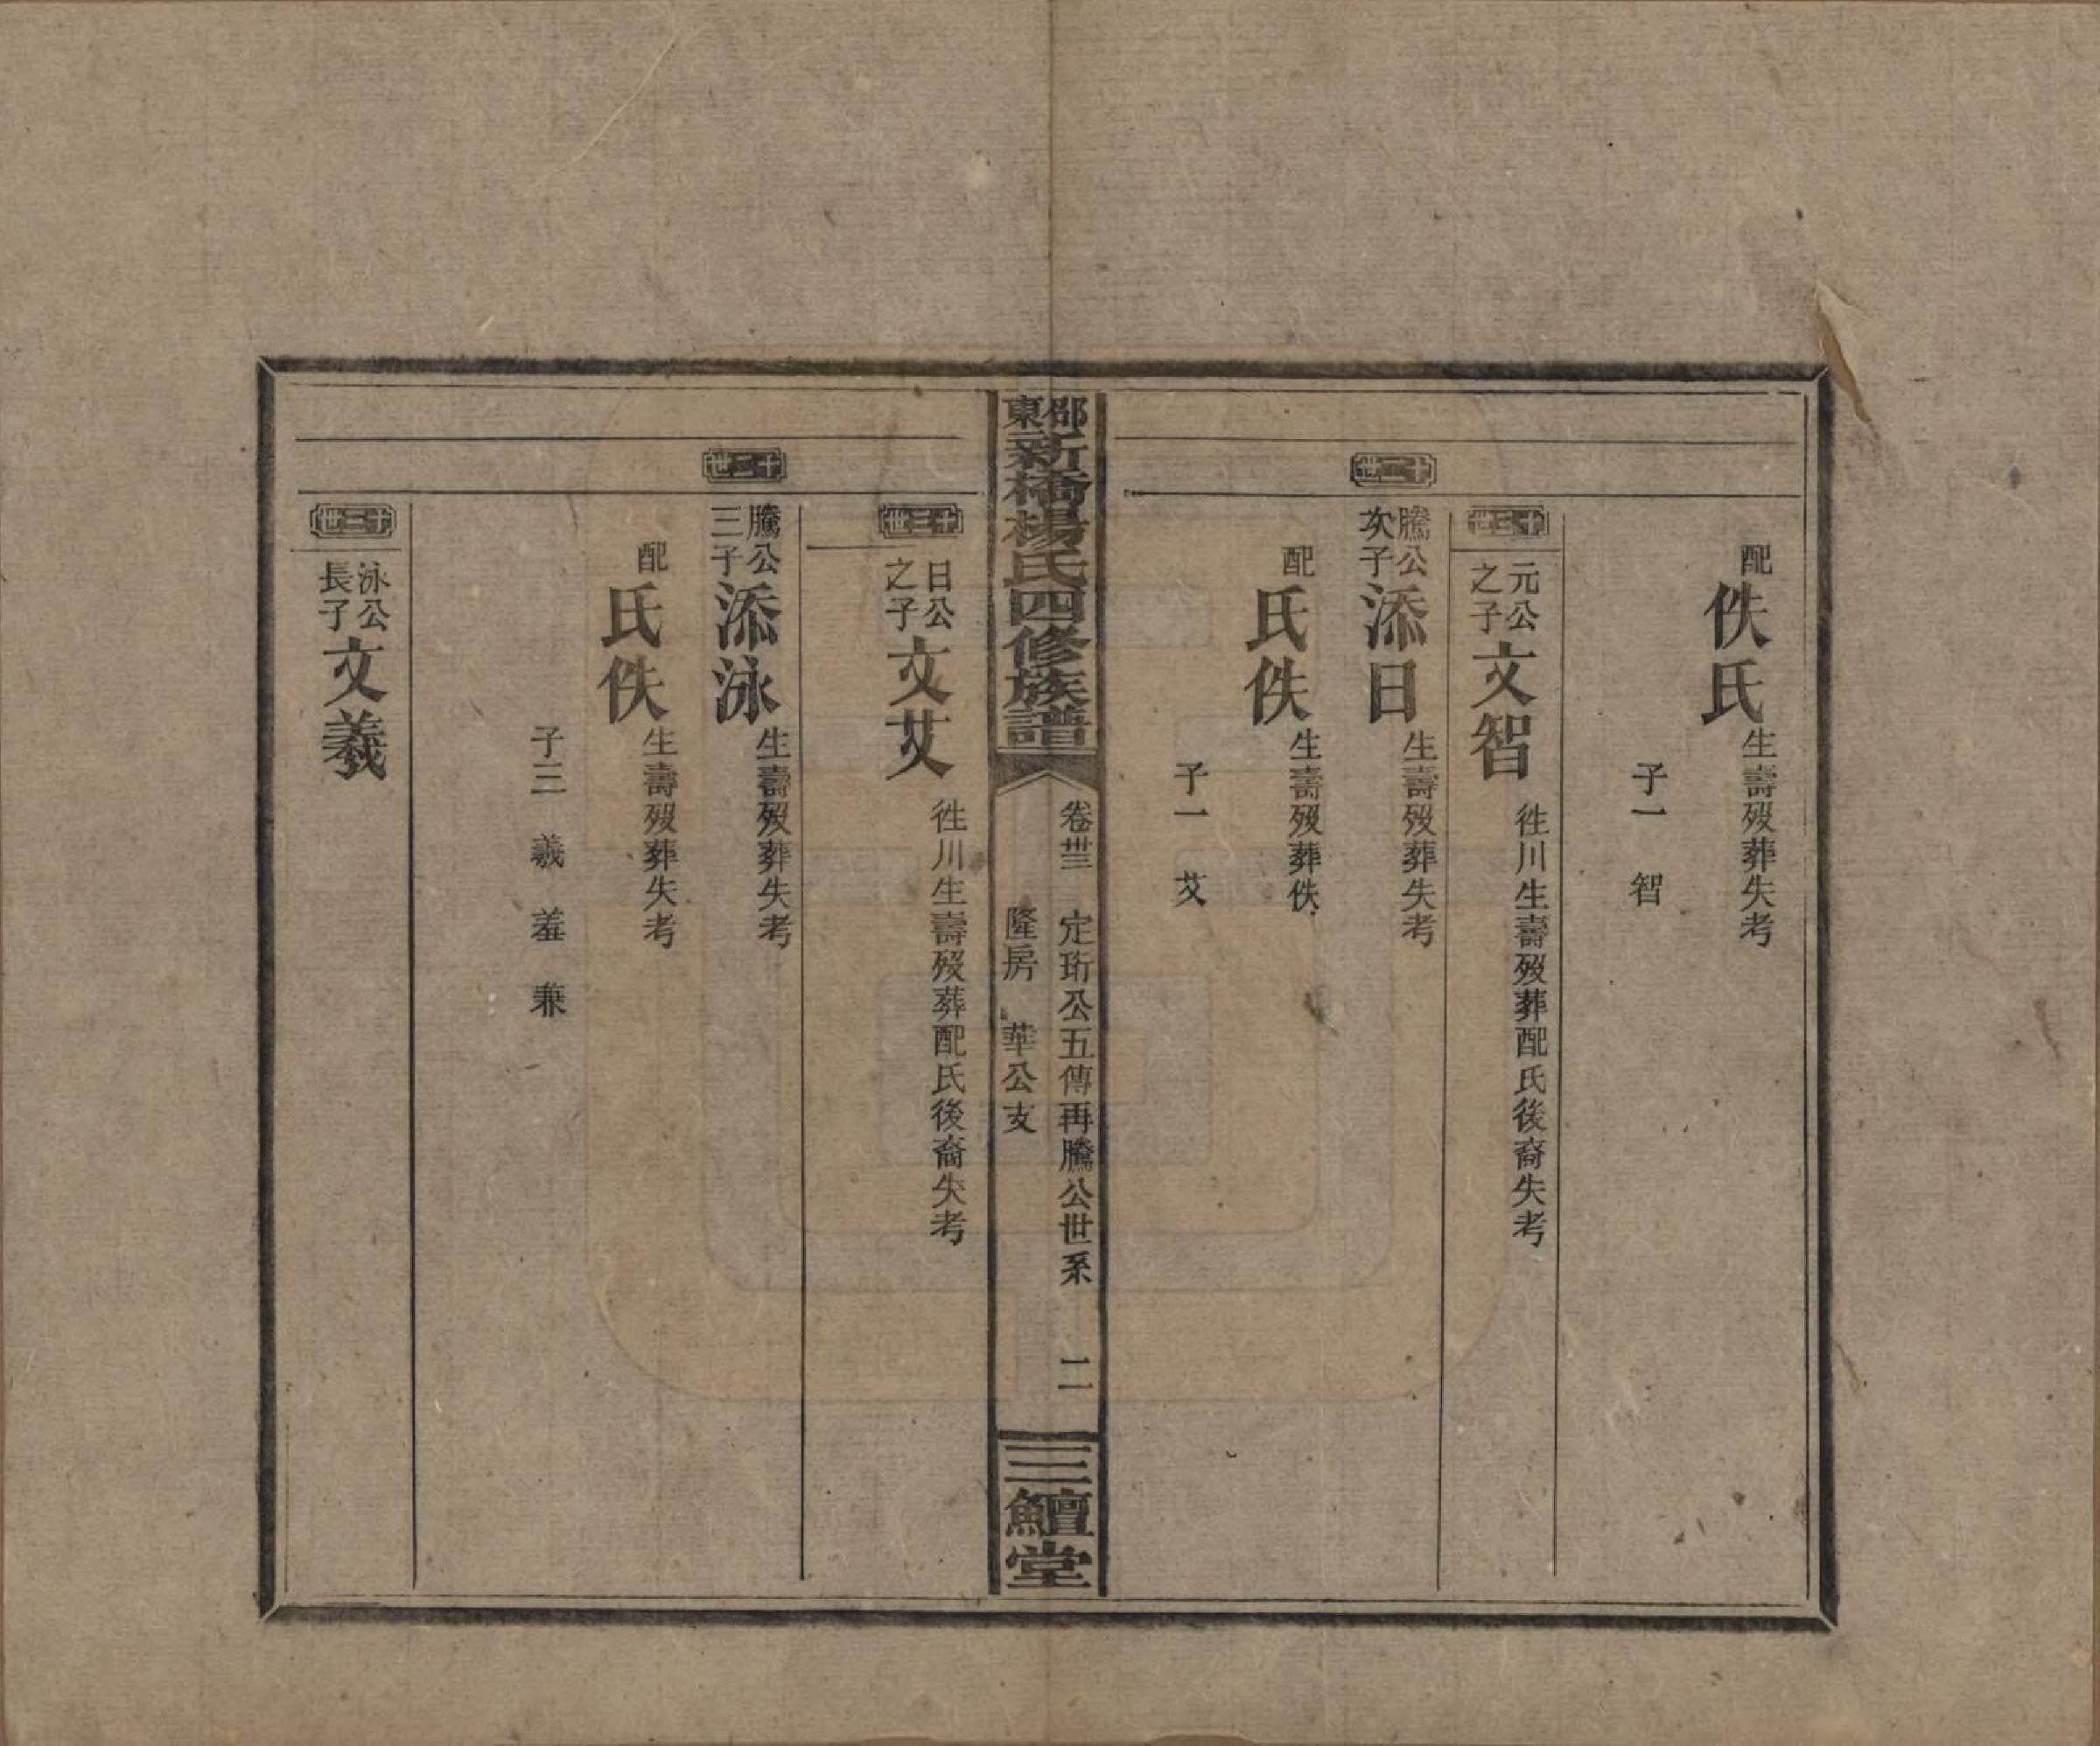 配佚氏生壽歿葬失考
子一 智
十三世
元公之子文智徃川生壽歿葬配氏後裔失考
十二世
騰公次子添日生壽歿葬失考
配氏佚生壽歿葬佚
子一 艾
邵東新橋楊氏四修族譜
卷卅三 定珩公五傳再騰公世系 二
隆房 華公支
三鱣堂
十三世
日公之子文艾徃川生壽歿葬配氏後裔失考
十二世
騰公三子添泳生壽歿葬失考
配氏佚生壽歿葬失考
子三 羲 羞 兼
十三世
泳公長子文羲